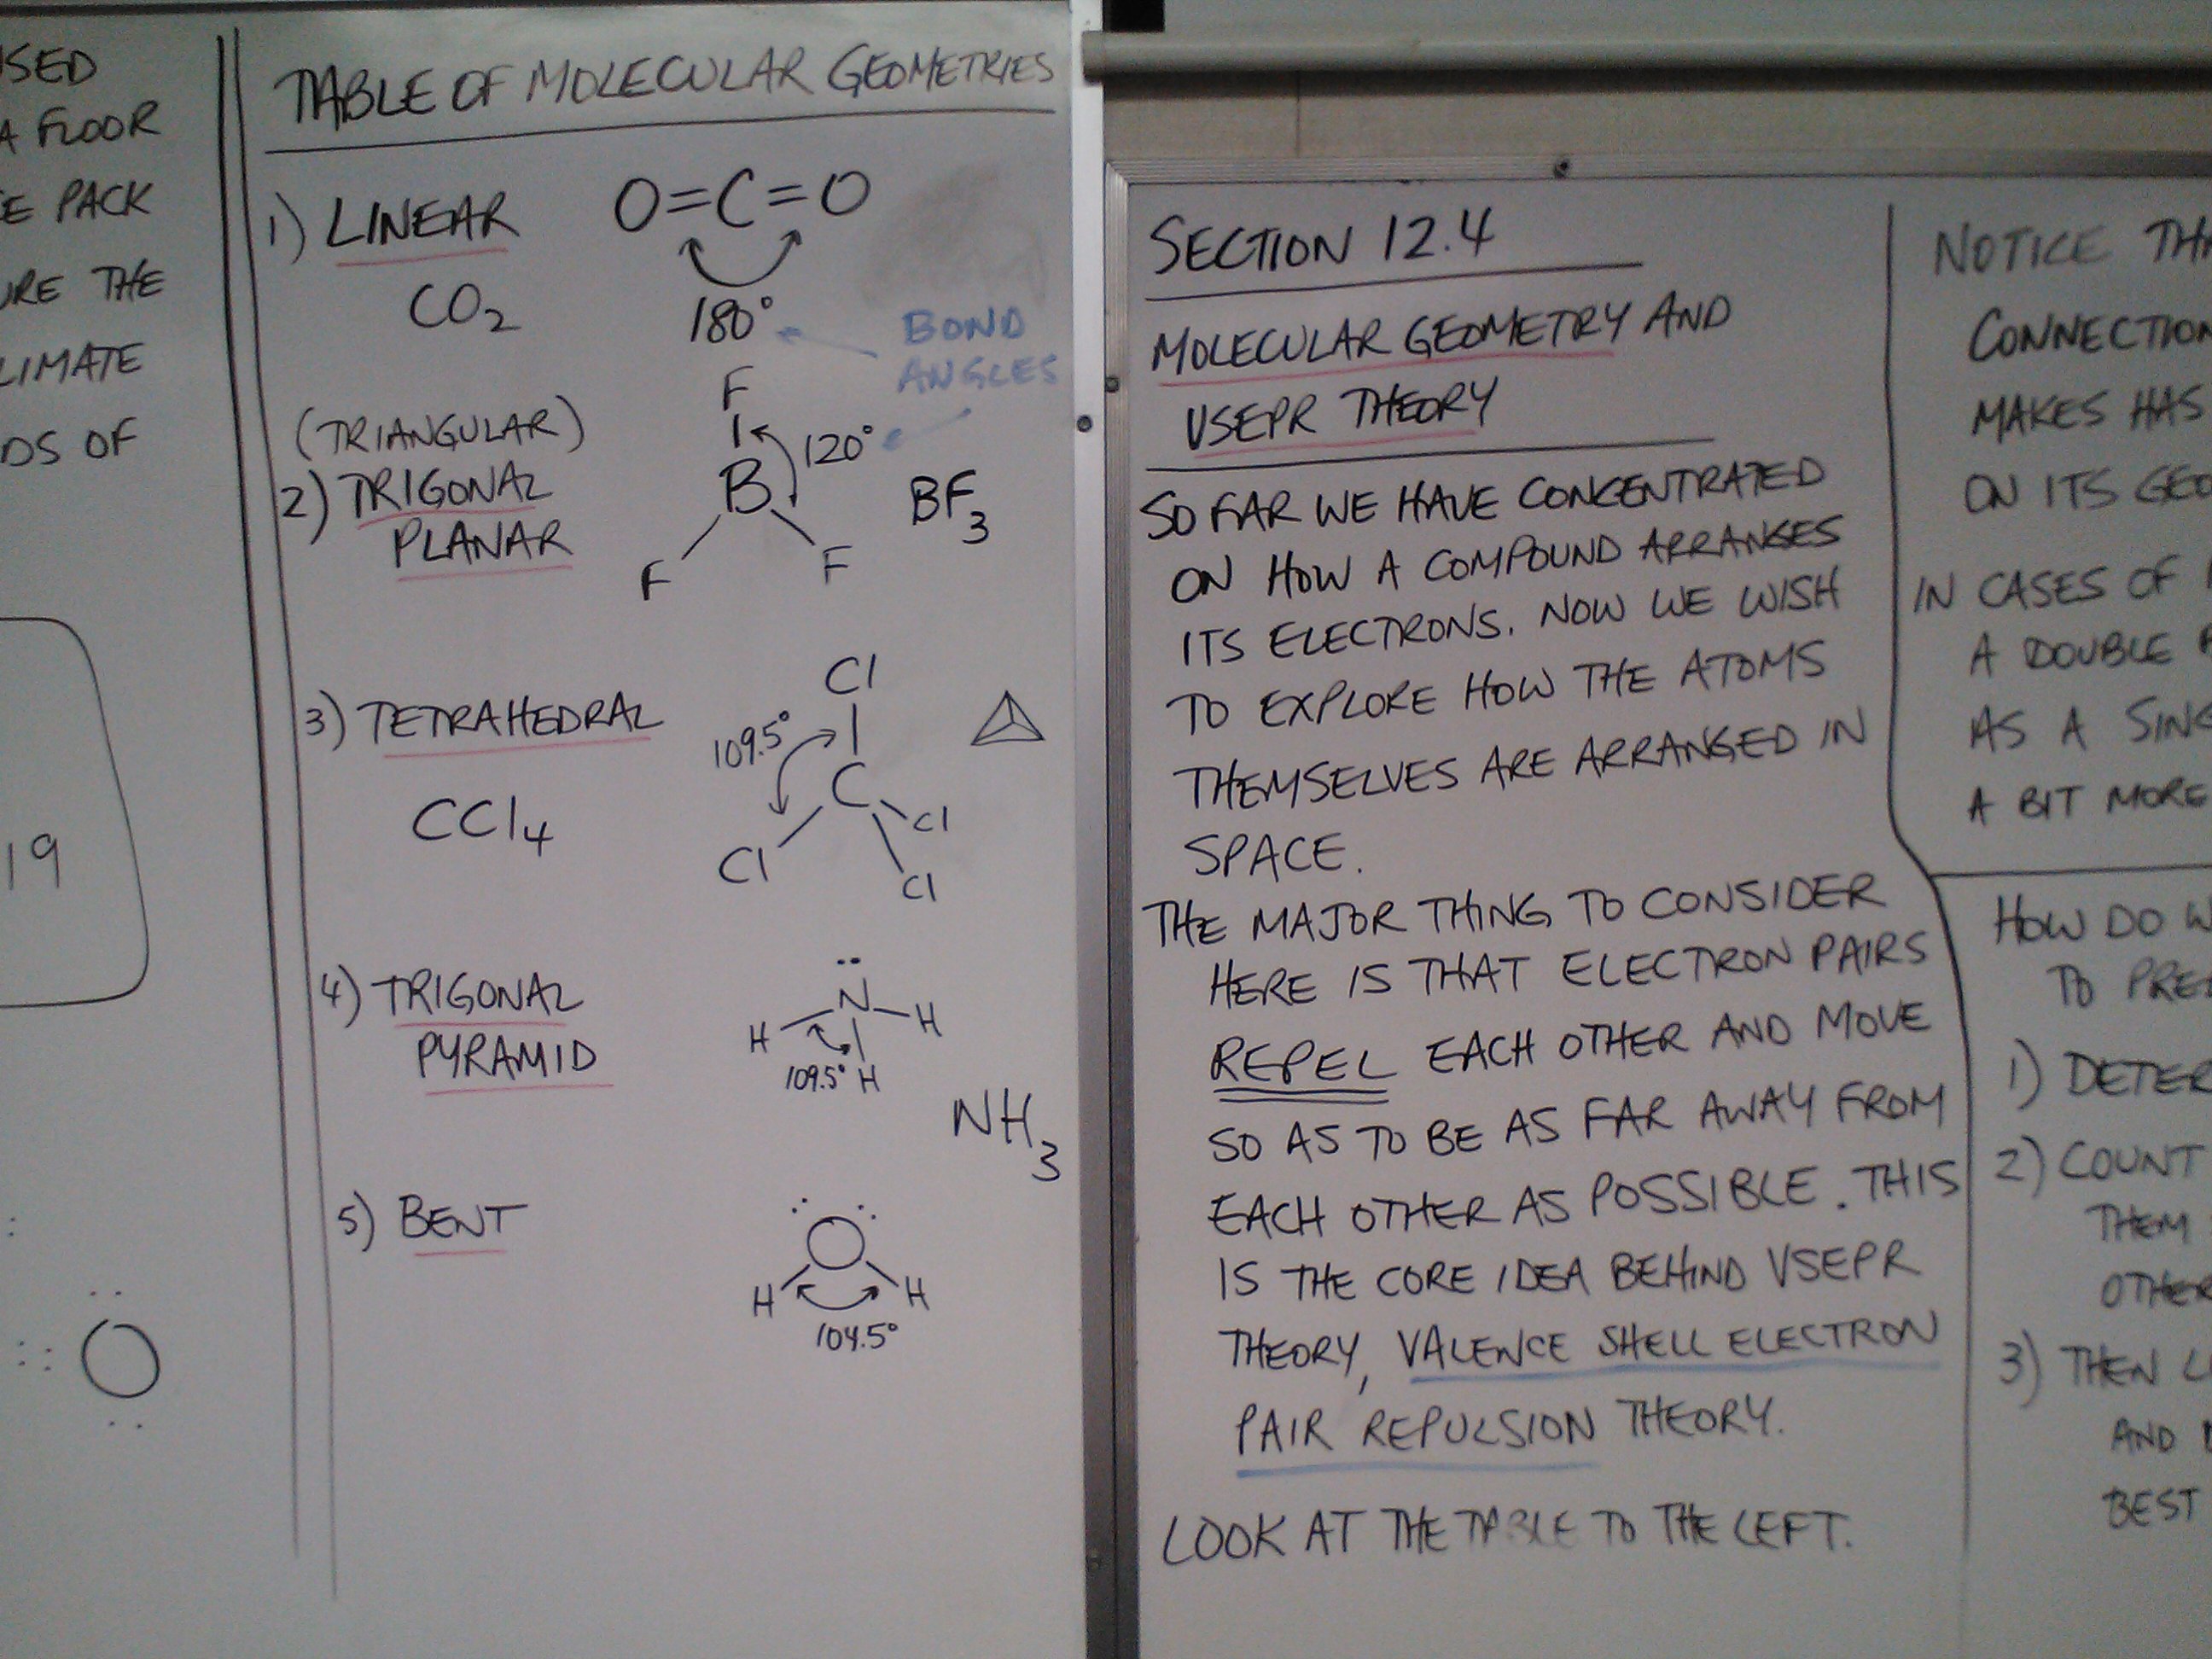 USED
A FLOOR
E PACK
URE THE
LIMATE
DS OF
19
TABLE OF MOLECULAR GEOMETRIES
1) LINEAR
CO2
O=C=O
180°
BOND
ANGLES
(TRIANGULAR)
2) TRIGONAL
PLANAR
F
B
120°
F
F
BF3
3) TETRAHEDRAL
CCl4
Cl
109.5°
C
Cl
Cl
Cl
4) TRIGONAL
PYRAMID
N
H
H
109.5° H
NH3
5) BENT
O
H
H
104.5°
O
SECTION 12.4
MOLECULAR GEOMETRY AND
VSEPR THEORY
SO FAR WE HAVE CONCENTRATED
ON HOW A COMPOUND ARRANGES
ITS ELECTRONS. NOW WE WISH
TO EXPLORE HOW THE ATOMS
THEMSELVES ARE ARRANGED IN
SPACE.
THE MAJOR THING TO CONSIDER
HERE IS THAT ELECTRON PAIRS
REPEL EACH OTHER AND MOVE
SO AS TO BE AS FAR AWAY FROM
EACH OTHER AS POSSIBLE. THIS
IS THE CORE IDEA BEHIND VSEPR
THEORY, VALENCE SHELL ELECTRON
PAIR REPULSION THEORY.
LOOK AT THE TABLE TO THE LEFT.
NOTICE TH
CONNECTION
MAKES HAS
ON ITS GEO
IN CASES OF
A DOUBLE
AS A SING
A BIT MORE
HOW DO W
TO PRE
1) DETER
2) COUNT
THEM
OTHER
3) THEN L
AND
BEST